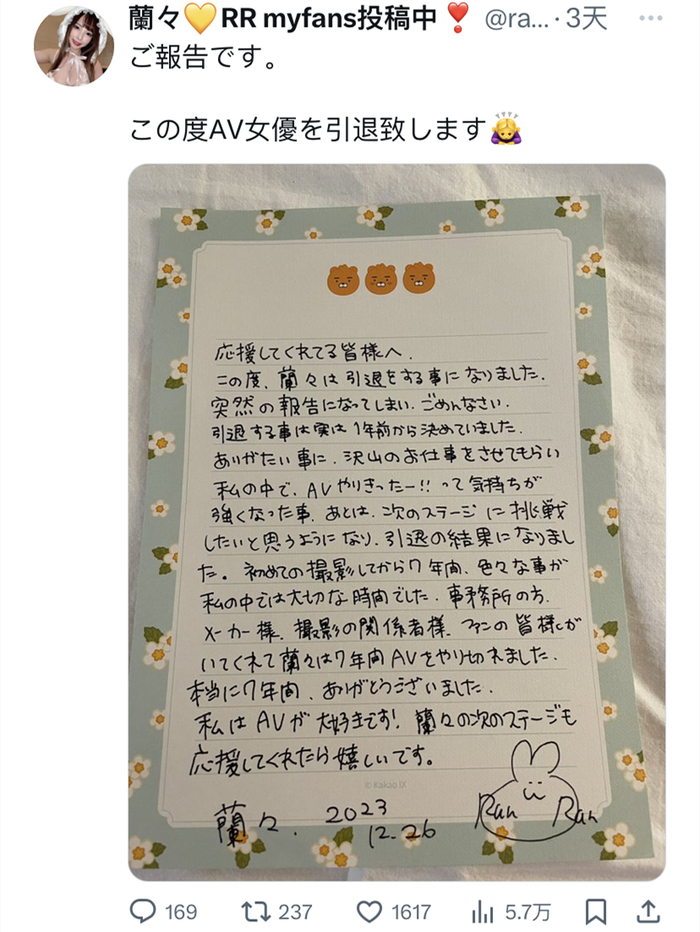 蘭々💛RR myfans投稿中❣️ @ra... · 3天
ご報告です。
この度AV女優を引退致します🙇‍♀️
応援してくれてる皆様へ.
この度、蘭々は引退をする事になりました.
突然の報告になってしまい、ごめんなさい.
引退する事は実は1年前から決めていました.
ありがたい事に、沢山のお仕事をさせてもらい
私の中で、AVやりきったー!!って気持ちが
強くなった事、あとは、次のステージに挑戦
したいと思うようになり、引退の結果になりまし
た。初めての撮影してから7年間、色々な事が
私の中では大切な時間でした.事務所の方.
メーカー様、撮影の関係者様、ファンの皆様が
いてくれて蘭々は7年間AVをやり切れました.
本当に7年間、ありがとうございました.
私はAVが大好きです!蘭々の次のステージも
応援してくれたら嬉しいです。
© Kakao IX
蘭々. 2023
12.26
Ran Ran
169 237 1617 5.7万